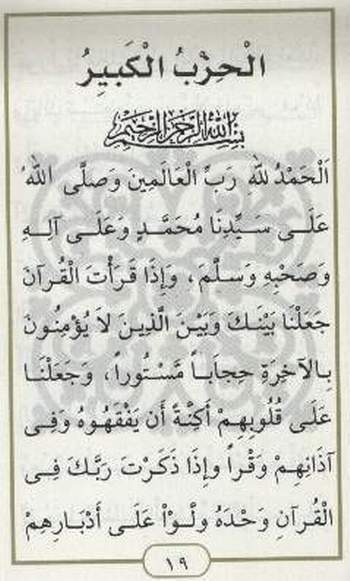 الْحِزْبُ الْكَبِيرُ
بِسْمِ اللهِ الرَّحْمٰنِ الرَّحِيمِ
اَلْحَمْدُ للهِ رَبِّ الْعَالَمِينَ وَصَلَّى اللهُ
عَلَـى سَـيِّدِنَا مُحَمَّـدٍ وَعَلَـى آلِـهِ
وَصَحْبِهِ وَسَلَّمَ، وَإِذَا قَرَأْتَ الْقُرآنَ
جَعَلْنَا بَيْنَـكَ وَبَيْـنَ الَّذِيـنَ لاَ يُؤْمِنُـونَ
بِـالآخِرَةِ حِجابَـاً مَّسْـتُوراً، وَجَعَلْنَـا
عَلَـى قُلُوبِهِـمْ أَكِنَّـةً أَن يَفْقَهُـوهُ وَفِـى
آذَانِهِـمْ وَقْـراً وإِذَا ذَكَـرْتَ رَبَّـكَ فِـى
الْقُرآنِ وَحْدَهُ ولَّـوْاْ عَلَـى أَدْبَـارِهِمْ
١٩